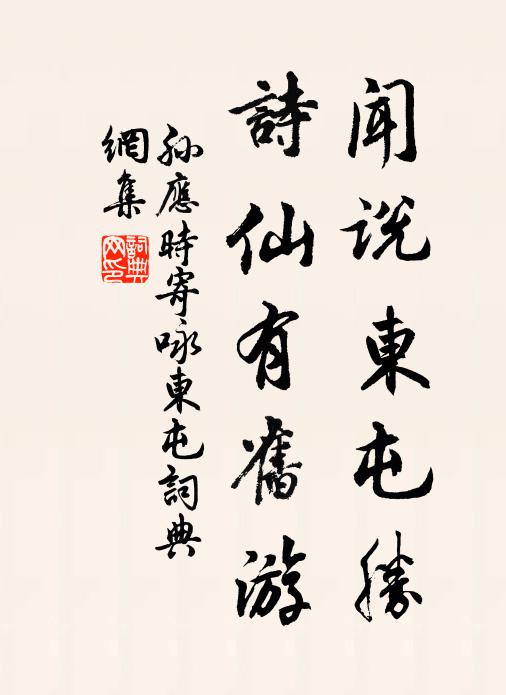 聞说東屯勝
詩仙有舊游
孫應時寄咏東屯詞典
網集
詞典網印